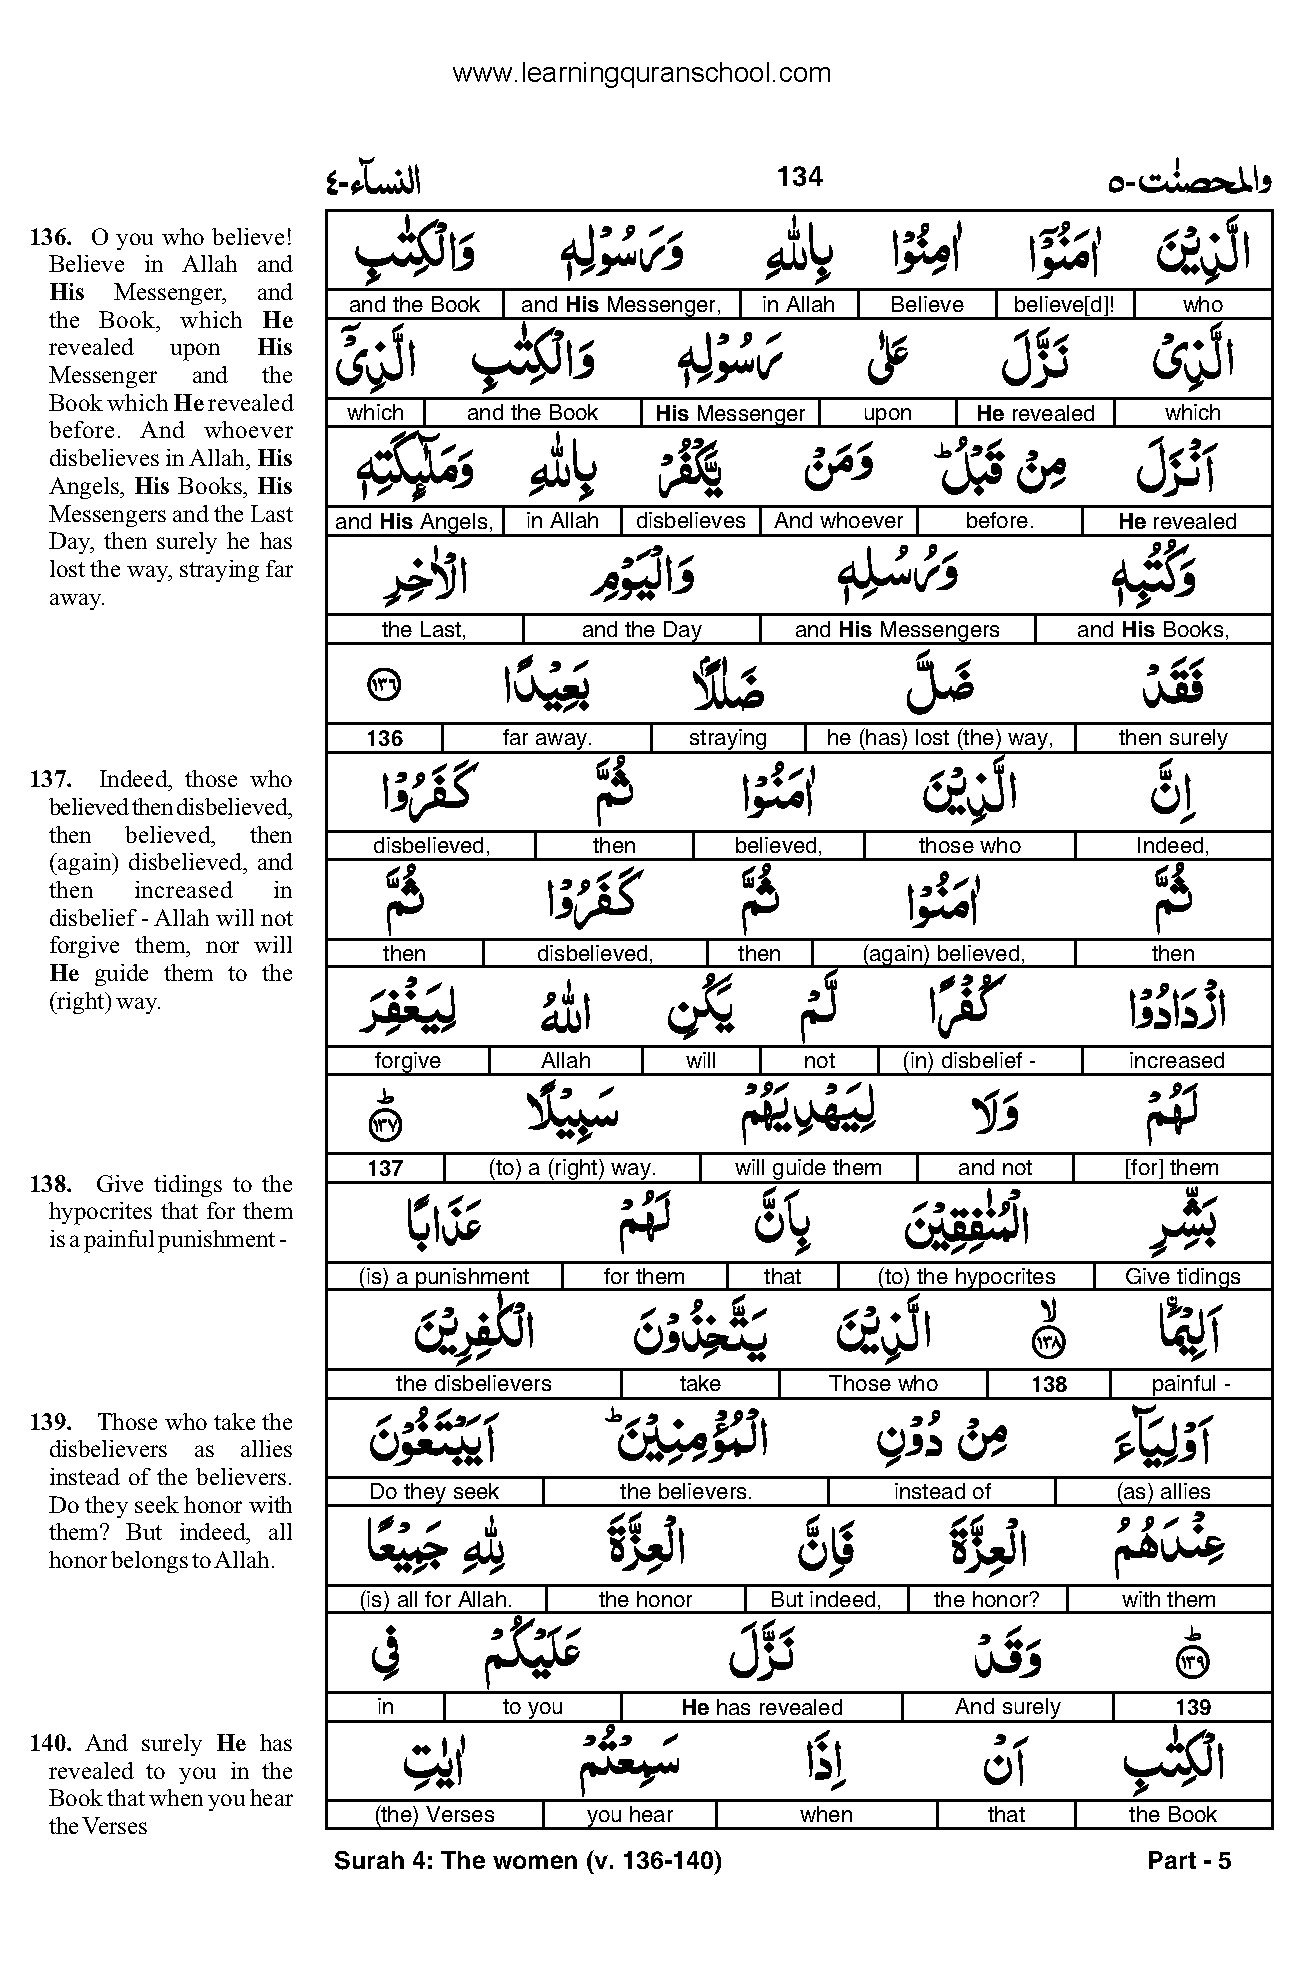 www.learningquranschool.com
النسآء-٤ 134 والمحصنٰت-٥
136. O you who believe!
Believe in Allah and
His Messenger, and
the Book, which He
revealed upon His
Messenger and the
Book which He revealed
before. And whoever
disbelieves in Allah, His
Angels, His Books, His
Messengers and the Last
Day, then surely he has
lost the way, straying far
away.
137. Indeed, those who
believed then disbelieved,
then believed, then
(again) disbelieved, and
then increased in
disbelief - Allah will not
forgive them, nor will
He guide them to the
(right) way.
138. Give tidings to the
hypocrites that for them
is a painful punishment -
139. Those who take the
disbelievers as allies
instead of the believers.
Do they seek honor with
them? But indeed, all
honor belongs to Allah.
140. And surely He has
revealed to you in the
Book that when you hear
the Verses
الَّذِيْنَ اٰمَنُوْٓا اٰمِنُوْا بِاللّٰهِ وَرَسُوْلِهٖ وَالْكِتٰبِ
and the Book and His Messenger, in Allah Believe believe[d]! who
الَّذِيْ نَزَّلَ عَلٰى رَسُوْلِهٖ وَالْكِتٰبِ الَّذِيْٓ
which and the Book His Messenger upon He revealed which
اَنْزَلَ مِنْ قَبْلُ ؕ وَمَنْ يَّكْفُرْ بِاللّٰهِ وَمَلٰٓئِكَتِهٖ
and His Angels, in Allah disbelieves And whoever before. He revealed
وَكُتُبِهٖ وَرُسُلِهٖ وَالْيَوْمِ الْاٰخِرِ
the Last, and the Day and His Messengers and His Books,
فَقَدْ ضَلَّ ضَلٰلًاۢ بَعِيْدًا ١٣٦
136 far away. straying he (has) lost (the) way, then surely
اِنَّ الَّذِيْنَ اٰمَنُوْا ثُمَّ كَفَرُوْا
disbelieved, then believed, those who Indeed,
ثُمَّ اٰمَنُوْا ثُمَّ كَفَرُوْا ثُمَّ
then disbelieved, then (again) believed, then
ازْدَادُوْا كُفْرًا لَّمْ يَكُنِ اللّٰهُ لِيَغْفِرَ
forgive Allah will not (in) disbelief - increased
لَهُمْ وَلَا لِيَهْدِيَهُمْ سَبِيْلًا ؕ ١٣٧
137 (to) a (right) way. will guide them and not [for] them
بَشِّرِ الْمُنٰفِقِيْنَ بِاَنَّ لَهُمْ عَذَابًا
(is) a punishment for them that (to) the hypocrites Give tidings
اَلِيْمًاۙ ١٣٨ الَّذِيْنَ يَتَّخِذُوْنَ الْكٰفِرِيْنَ
the disbelievers take Those who 138 painful -
اَوْلِيَآءَ مِنْ دُوْنِ الْمُؤْمِنِيْنَ ؕ اَيَبْتَغُوْنَ
Do they seek the believers. instead of (as) allies
عِنْدَهُمُ الْعِزَّةَ فَاِنَّ الْعِزَّةَ لِلّٰهِ جَمِيْعًا
(is) all for Allah. the honor But indeed, the honor? with them
ؕ ١٣٩ وَقَدْ نَزَّلَ عَلَيْكُمْ فِى
in to you He has revealed And surely 139
الْكِتٰبِ اَنْ اِذَا سَمِعْتُمْ اٰيٰتِ
(the) Verses you hear when that the Book
Surah 4: The women (v. 136-140) Part - 5